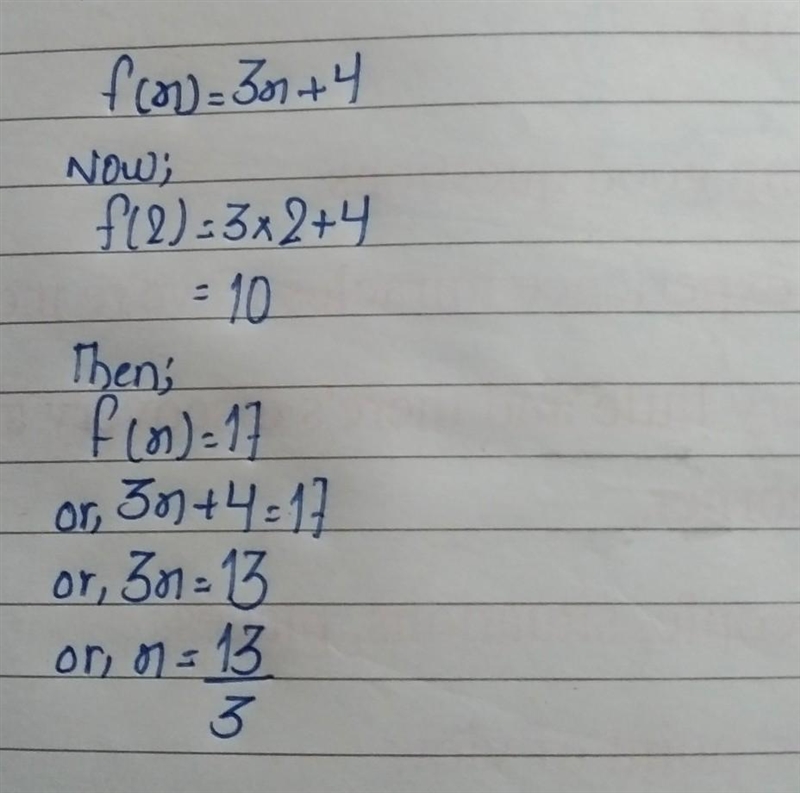 f(x)=3x+4
Now;
f(2)=3×2+4
=10
Then;
f(x)=17
or, 3x+4=17
or, 3x=13
or, x=13/3